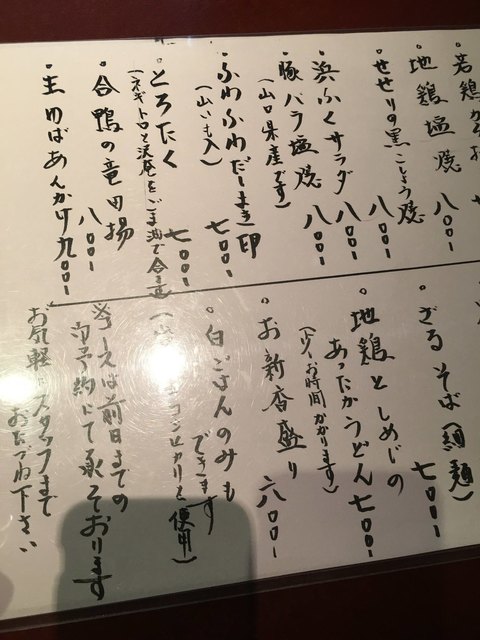 若鶏
地鶏塩焼 八〇〇ー
せせりの黒こしょう焼 八〇〇ー
浜ふくサラダ 八〇〇ー
豚バラ塩焼 八〇〇ー
(山口県産です)
ふわふわだしまき 七〇〇ー
(山いも入)
とろたく 七〇〇ー
(ネギトロと沢庵をごま油で合
合鴨の竜田揚 八〇〇ー
生ゆばあんかけ 九〇〇ー
ざるそば(細麺) 七〇〇ー
地鶏としめじの
あったかうどん 七〇〇ー
(少々お時間かかります)
お新香盛り 六〇〇ー
白ごはんのみも
できます
コシヒカリを使用)
※コースは前日までの
御予約にて承っております
お気軽にスタッフまで
おたづね下さい